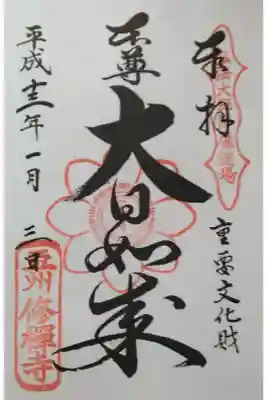 奉拝
重要文化財
本尊
大日如来
平成十三年一月三日
豆州 修禪寺